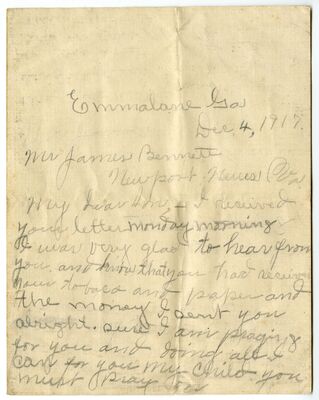 Emmalane Ga
Dec 4, 1917.
Mr James Bennett
Newport News Va
My dear son, - I received
your letter monday morning
I was very glad to hear from
you. and know that you had receive
your tobaco and paper and
the money I sent you
alright. sure I am praying
for you and doing all I
can for you my child you
must pray for